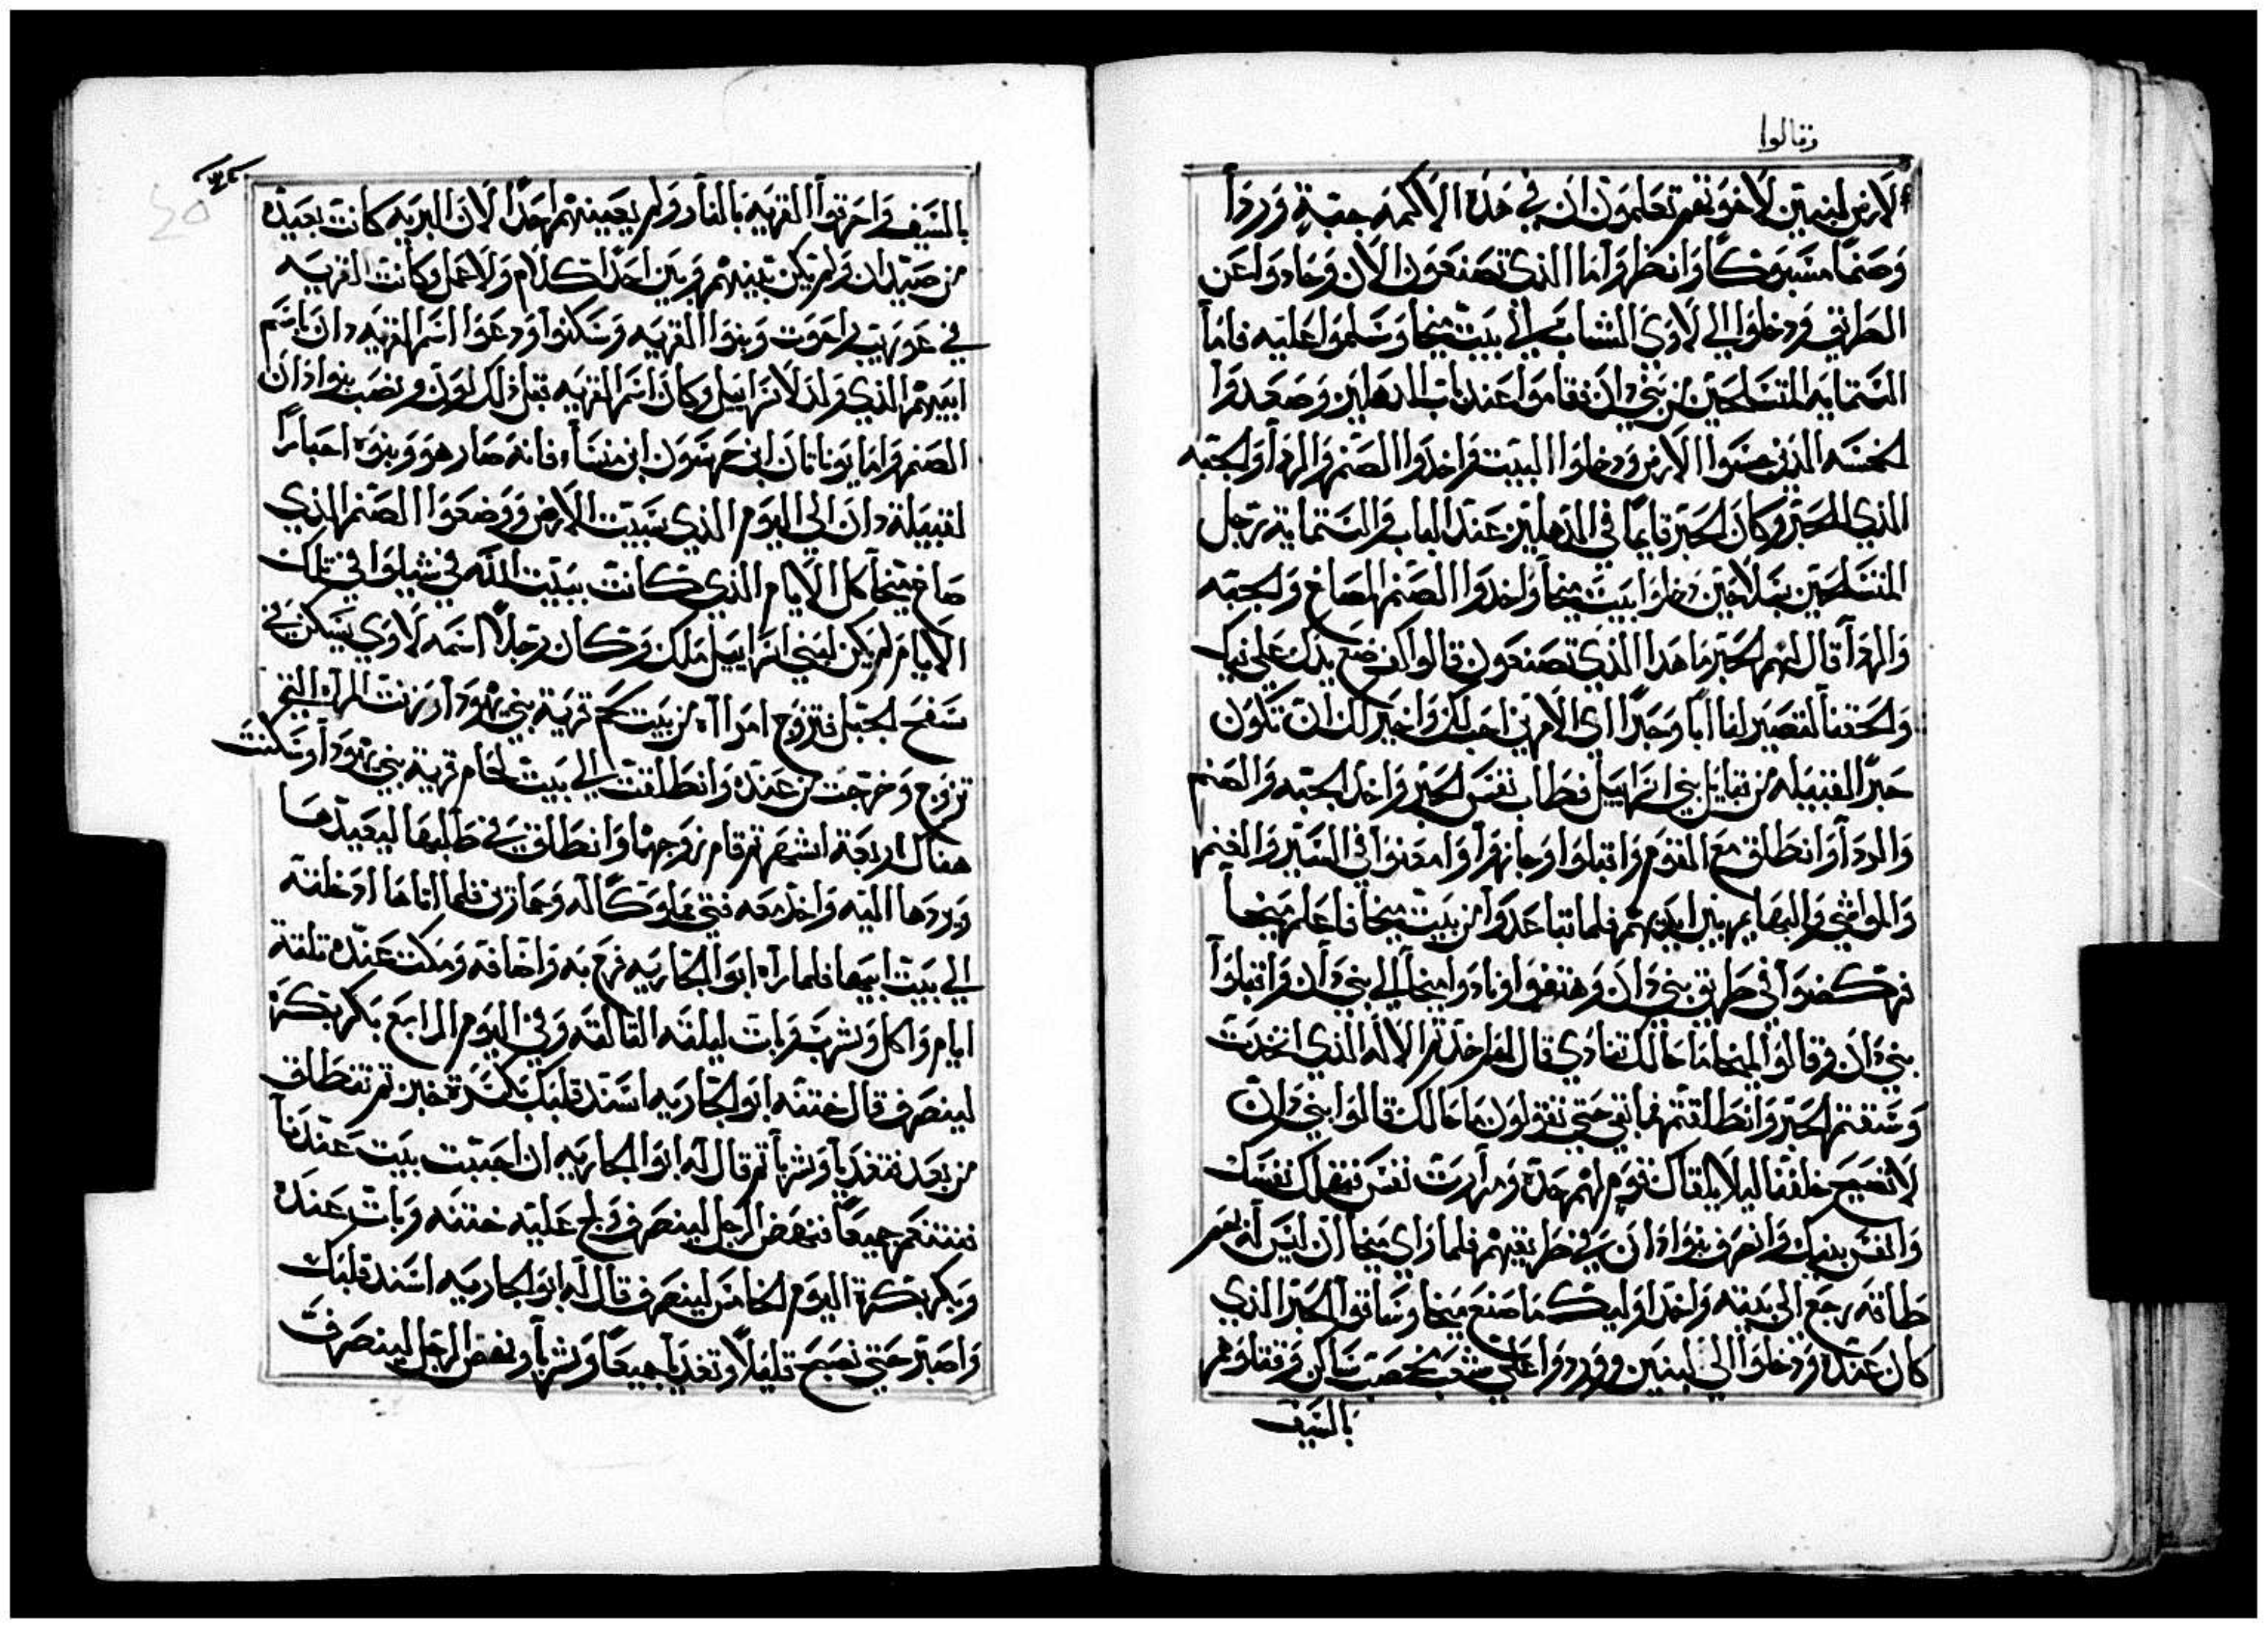 وقالوا
الارض لبنيين لاخوتهم تعلمون ان في هذه الاكمه جبة وردا
وصنما مسبوكا وانظروا ما الذي تصنعون الان وحادوا عن
الطريق ودخلوا الي لاوي الشاب الي بيت ميخا وسلموا عليه فاما
الستمايه المتسلحين من بني دان فقاموا عند باب الدهليز وصعدوا
الخمسه الذين جسوا الارض ودخلوا البيت واخدوا الصنم والردا والجبه
الذي للحبر وكان الحبر قايما في الدهليز عند الباب والستماية رجل
المتسلحين بسلاحين دخلوا بيت ميخا واخدوا الصنم المصاغ والجبه
والردا قال لهم الحبر ما هدا الذي تصنعون قالوا كف ضع يدك علي فيك
والحقنا لتصير لنا ابا وحبرا اي الامرين احب لك واخير لك ان تكون
حبرا لقبيله من قبايل بني اسراييل فطاب نفس الحبر واخد الجبه والصنم
والردا وانطلق مع القوم واقبلوا وجازوا وامعنوا في السير والغنم
والمواشي والبهايم بين ايديهم فلما تباعدوا من بيت ميخا فاعلم ميخا
فركضوا في طريق بني دان وهتفوا ونادوا ميخا الي بني دان واقبلوا
بني دان وقالوا لميخا ما مالك تنادي قال لهم اخدتم الاله الذي اتخدت
وسقتم الحبر وانطلقتم فما بقي حتي تقولون ما مالك قالوا بني دان
لا تصيح خلفنا ليلا يلقاك قوم لهم حدة ومرارت نفس فتهلك نفسك
وانفس بنيك وانصرف بنوا دان في طريقهم فلما راي ميخا ان ليس له بهم
طاقه رجع الي بيته واخدوا وليك ما صنع ميخا وساقوا الحبر الذي
كان عنده ودخلوا الي لبنيين ووردوا علي شعب مخصب ساكن وقتلوهم
بالسيف
بالسيف واحرقوا القريه بالنار ولم يعينهم احدا لان البريه كانت بعيده
من صيدان ولم يكن بينهم وبين احدا كلام ولا عمل وكانت القريه
في غور بيت راعوت وبنوا القريه وسكنوا ودعوا اسم القريه دان باسم
ابيهم الذي ولد لاسراييل وكان اسم القريه قبل ذلك لون ونصب بنوا دان
الصنم واما يوناتان ابن جرسون ابن منسا فانه صار هو وبنوه احبارا
لقبيلة دان الي اليوم الذي سبيت الارض ووضعوا الصنم الذي
صاغ ميخا كل الايام الذي كانت بيت الله في شيلوا في تلك
الايام لم يكن لبني اسراييل ملك وكان رجلا اسمه لاوي يسكن في
سفح الجبل فتزوج امراه من بيت لحم قرية بني يهودا وزنت المراه التي
تزوج وخرجت من عنده وانطلقت الي بيت لحام قرية بني يهودا وسكنت
هناك اربعة اشهر ثم قام زوجها وانطلق في طلبها ليعيدها
ويردها اليه واخد معه فتي مملوكا له وحمارين فلما اتاها ادخلته
الي بيت ابيها فلما راه ابو الجاريه فرح به واضافه ومكت عنده تلتة
ايام واكل وشرب وبات ليلته التالته وفي اليوم الرابع بكر بكرة
لينصرف قال ختنه ابو الجاريه اسند قلبك بكسرة خبز ثم تنطلق
من بعد فتغديا وشربا ثم قال له ابو الجاريه ان احببت بيت عندنا
فنتنعم جميعا فنهض الرجل لينصرف ولج عليه ختنه وبات عنده
وبكر بكرة اليوم الخامس لينصرف قال له ابو الجاريه اسند قلبك
واصبر حتي نصبح قليلا وتغديا جميعا وشربا ونهض الرجل لينصرف